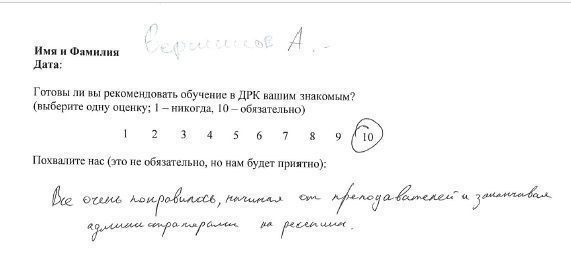 Имя и Фамилия Вершинов А.
Дата:
Готовы ли вы рекомендовать обучение в ДРК вашим знакомым?
(выберите одну оценку; 1 – никогда, 10 – обязательно)
1 2 3 4 5 6 7 8 9 10
Похвалите нас (это не обязательно, но нам будет приятно):
Все очень понравилось, начиная от преподавателей и заканчивая
администраторами на ресепшн.